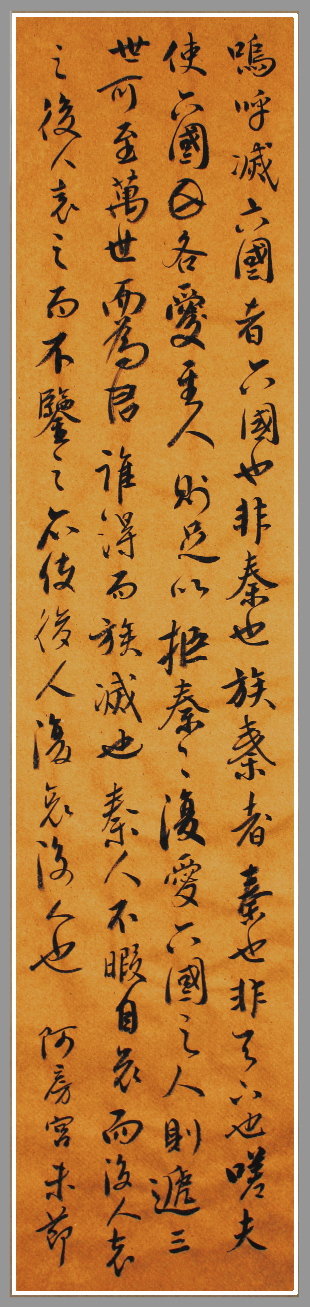 嗚呼滅六國者六國也非秦也族秦者秦也非天下也嗟夫
使六國各愛其人則足以拒秦〻復愛六國之人則遞三
世可至萬世而為君誰得而族滅也秦人不暇自哀而後人哀
之後人哀之而不鑒之亦使後人復哀後人也 阿房宮末節